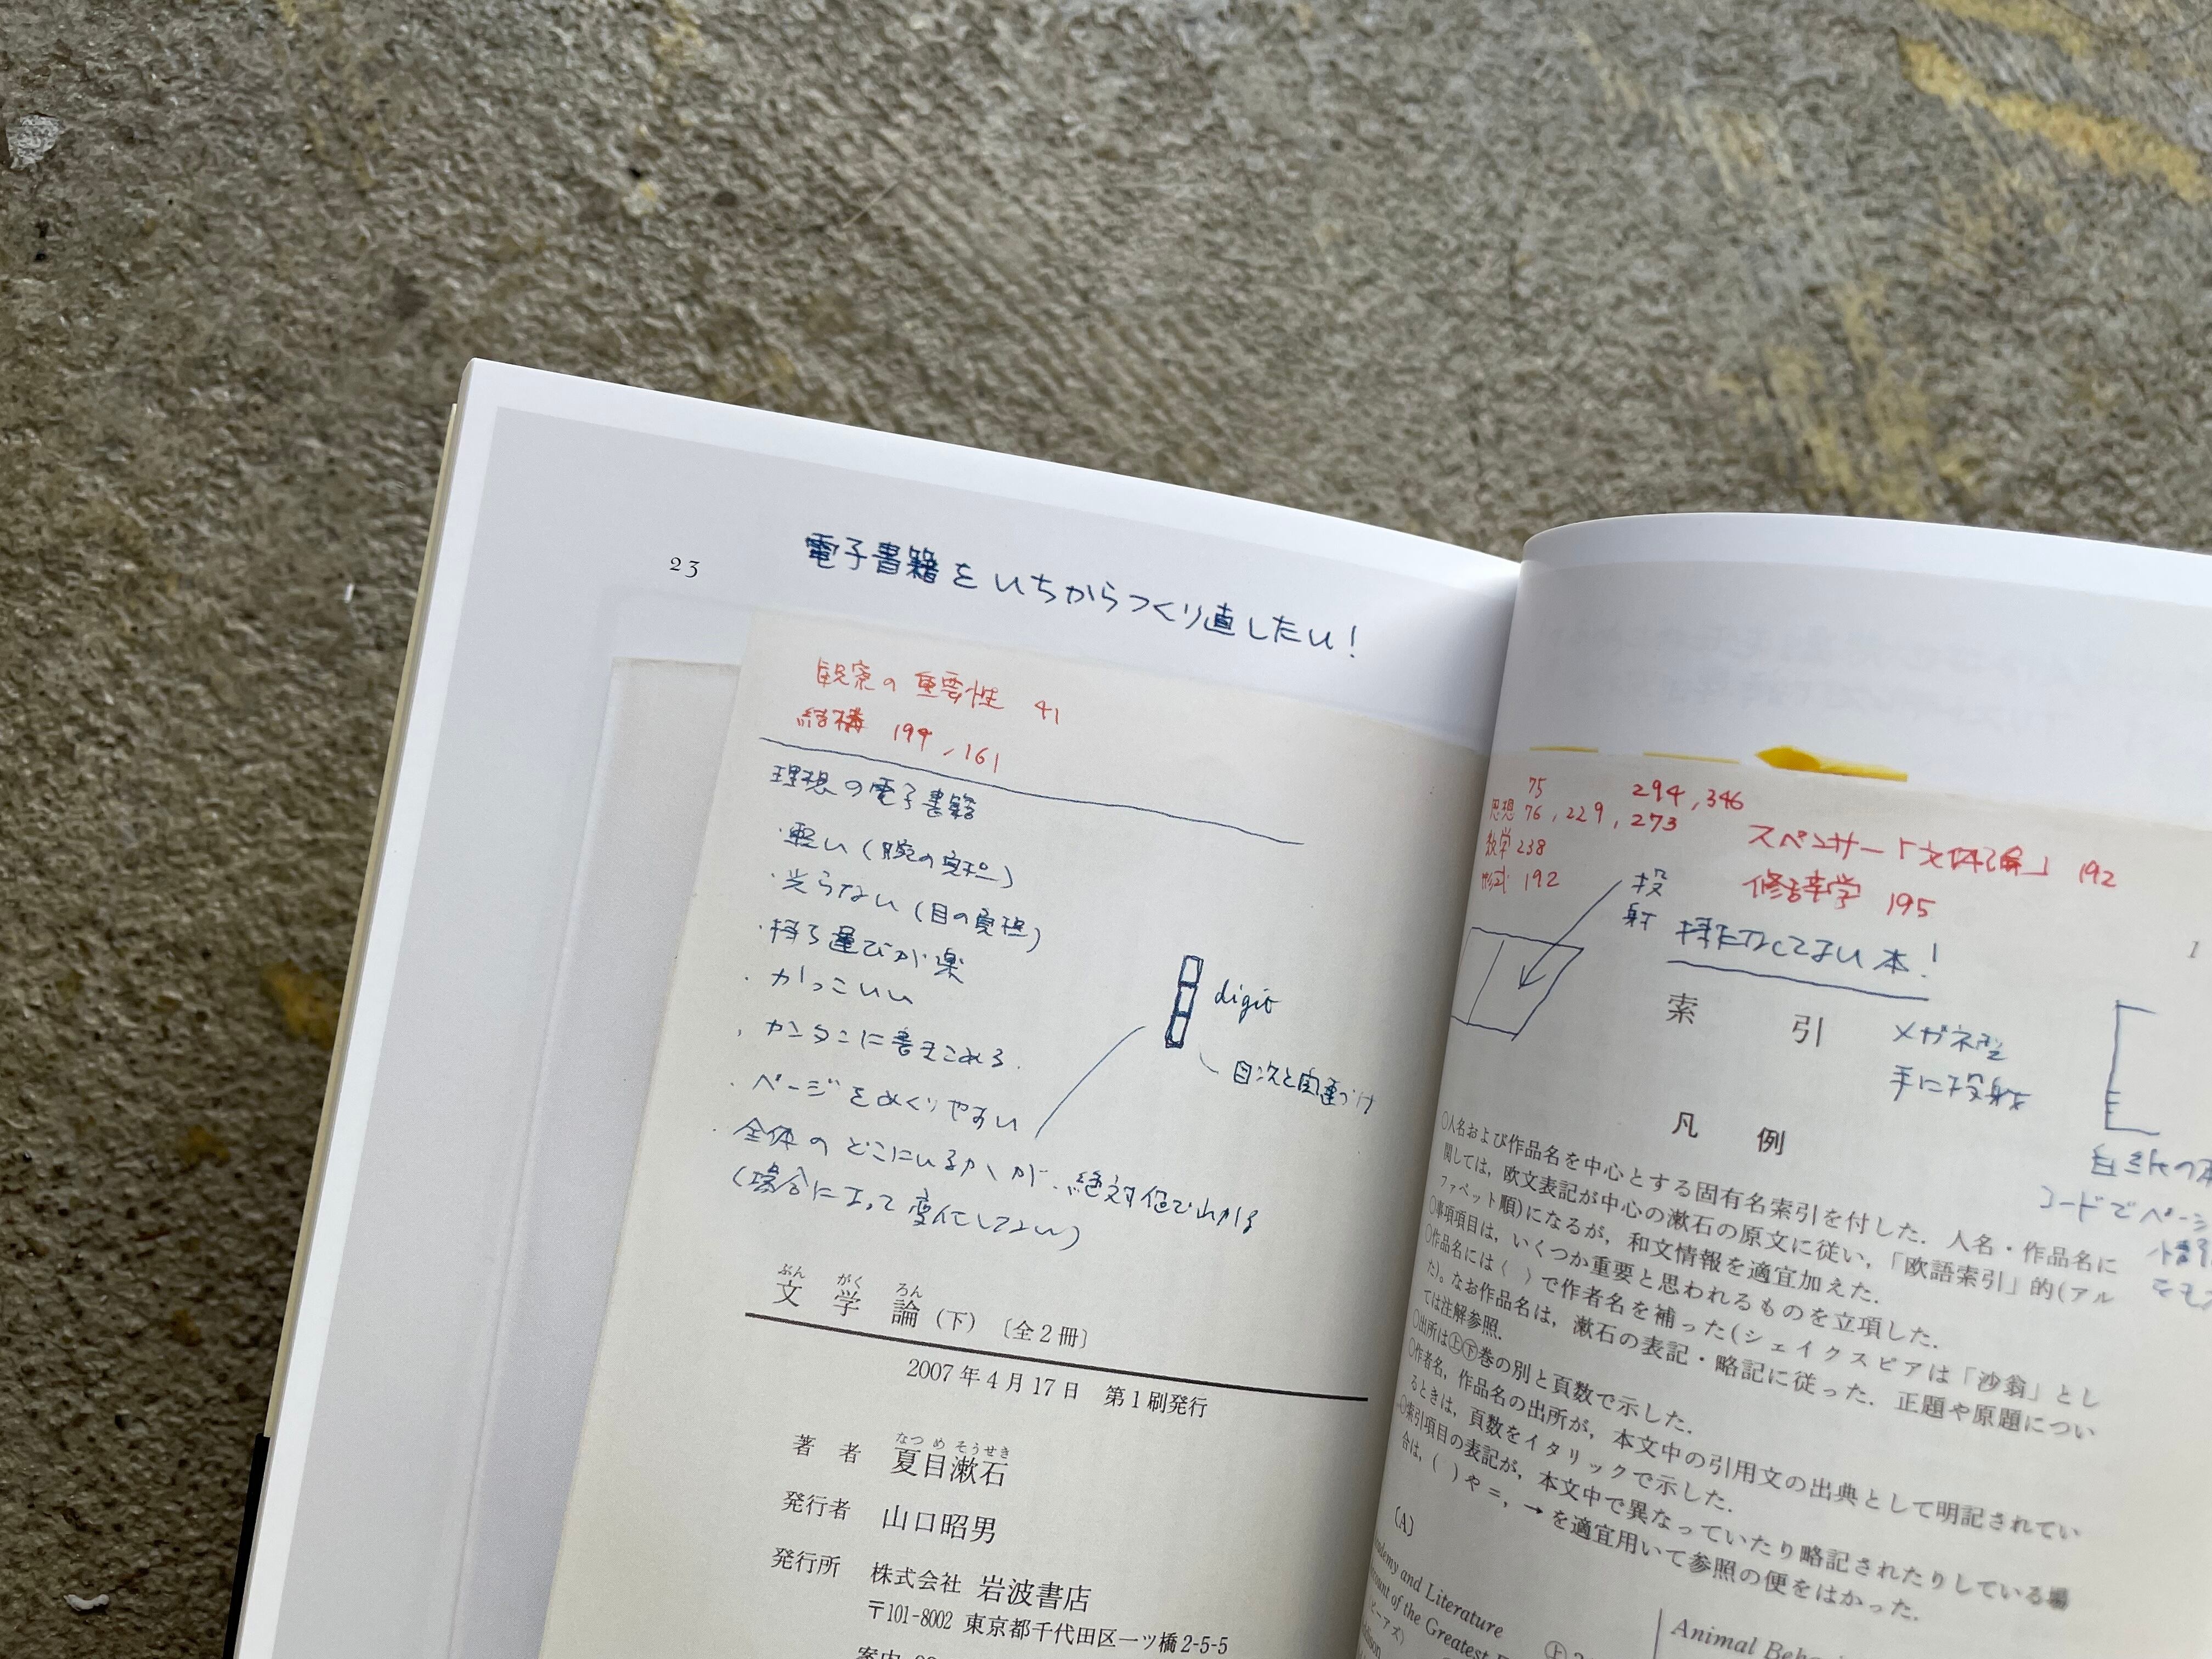 23
電子書籍をいちからつくり直したい!
観察の重要性 41
結構 199, 161
理想の電子書籍
・軽い(腕の負担)
・光らない(目の負担)
・持ち運びが楽
・かっこいい
・カンタンに書きこめる.
・ページをめくりやすい
・全体のどこにいるかが、絶対値でわかる
(場合によって変化してない)
digit
目次と関連づけ
ぶん がく ろん
文学論(下)〔全2冊〕
2007年4月17日 第1刷発行
なつ め そうせき
著者 夏目漱石
発行者 山口昭男
発行所 株式会社 岩波書店
〒101-8002 東京都千代田区一ツ橋2-5-5
案内
75 294, 346
思想 76, 229, 273
数学 238
形式 192
スペンサー「文体論」 192
修辞学 195
投射
本!
1
索引
メガネ型
手に投射
白紙の本
コードでページ
凡例
○人名および作品名を中心とする固有名索引を付した.人名・作品名に
関しては,欧文表記が中心の漱石の原文に従い,「欧語索引」的(アル
ファベット順)になるが,和文情報を適宜加えた.
○事項項目は,いくつか重要と思われるものを立項した.
○作品名には〈 〉で作者名を補った(シェイクスピアは「沙翁」とし
た)。なお作品名は,漱石の表記・略記に従った.正題や原題につい
ては注解参照.
○出所は㊤㊦巻の別と頁数で示した.
○作者名,作品名の出所が,本文中の引用文の出典として明記されてい
るときは,頁数をイタリックで示した.
○索引項目の表記が,本文中で異なっていたり略記されたりしている場
合は,( )や=,→を適宜用いて参照の便をはかった.
〔A〕
and Literature
of the Greatest
ピーアズ)
㊤
Animal